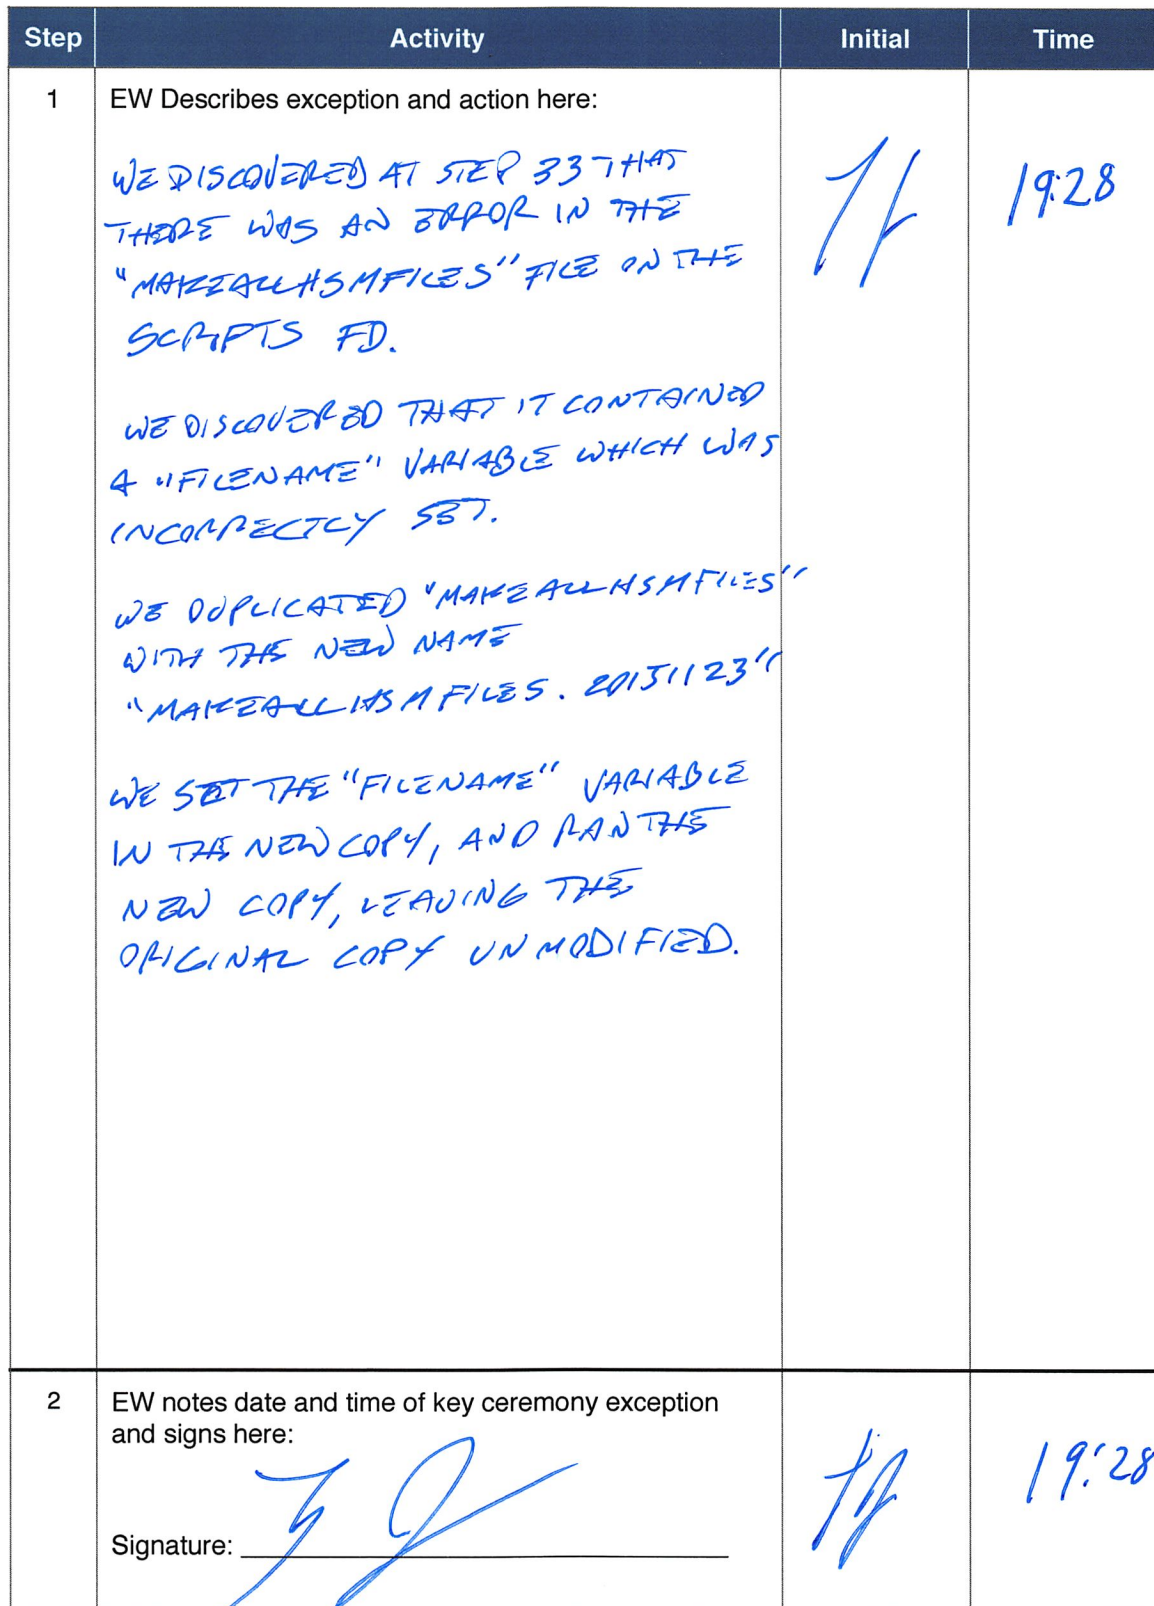 Step Activity Initial Time
1 EW Describes exception and action here:
WE DISCOVERED AT STEP 33 THAT
THERE WAS AN ERROR IN THE
"MAKEALLHSMFILES" FILE ON THE
SCRIPTS FD.
19:28
WE DISCOVERED THAT IT CONTAINED
A "FILENAME" VARIABLE WHICH WAS
INCORRECTLY SET.
WE DUPLICATED "MAKEALLHSMFILES"
WITH THE NEW NAME
"MAKEALLHSMFILES.20151123"
WE SET THE "FILENAME" VARIABLE
IN THE NEW COPY, AND RAN THE
NEW COPY, LEAVING THE
ORIGINAL COPY UNMODIFIED.
2 EW notes date and time of key ceremony exception
and signs here:
19:28
Signature: